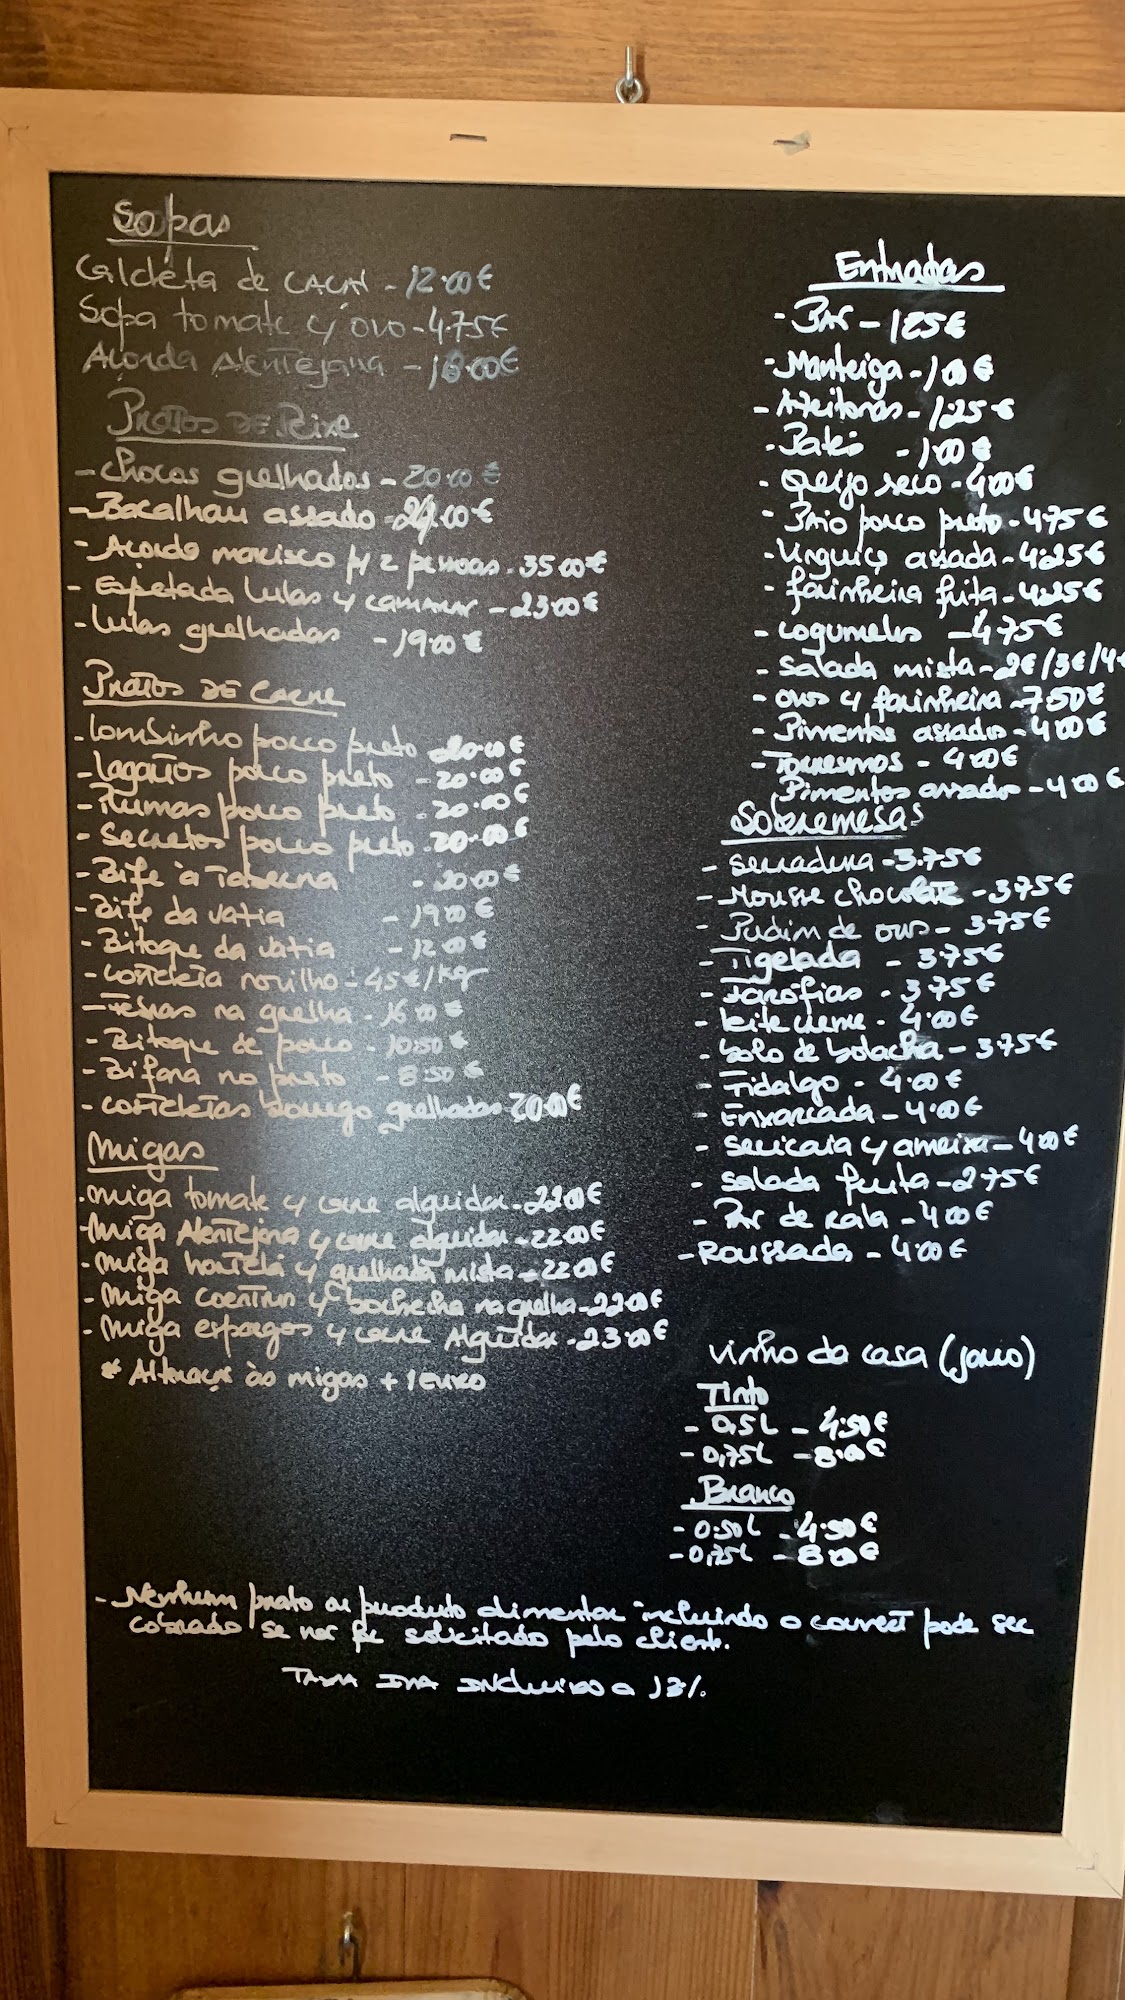 Sopas
Caldeta de cação - 12.00€
Sopa tomate c/ ovo - 4.75€
Açorda Alentejana - €
Pratos de Peixe
- chocos grelhados - 20.00€
- Bacalhau assado - €
- Açorda marisco p/ 2 pessoas - 35.00€
- Espetada lulas c/ camarão - 23.00€
- lulas grelhadas - 19.00€
Pratos de Carne
- lombinho porco preto - 20.00€
- lagartos porco preto - 20.00€
- Plumas porco preto - 20.00€
- Secretos porco preto - 20.00€
- Bife à Taberna - 20.00€
- Bife da vazia - 19.00€
- Bitoque da vazia - 12.00€
- costeleta novilho - 45€/kg
- Febras na grelha - 16.00€
- Bitoque de porco - 10.50€
- Bifana no prato - 8.50€
- costeletas borrego grelhadas 20.00€
Migas
- miga tomate c/ carne alguidar - 22.00€
- Miga Alentejana c/ carne alguidar - 22.00€
- Miga hortelã c/ grelhada mista - 22.00€
- Miga coentros c/ bochecha na grelha - 22.00€
- Miga espargos c/ carne Alguidar - 23.00€
* Alteração às migas + 1 euro
Entradas
- Pão - 1.25€
- Manteiga - 1.00€
- Azeitonas - 1.25€
- Patés - 1.00€
- Queijo seco - 4.00€
- Paio porco preto - 4.75€
- Linguiça assada - 4.25€
- farinheira frita - 4.25€
- cogumelos - 4.75€
- Salada mista - 2€/3€/4€
- ovos c/ farinheira - 7.50€
- Pimentos assados - 4.00€
- Torresmos - 4.00€
Pimentos assados - 4.00€
Sobremesas
- serradura - 3.75€
- Mousse chocolate - 3.75€
- Pudim de ovos - 3.75€
- Tigelada - 3.75€
- Farófias - 3.75€
- leite creme - 4.00€
- bolo de bolacha - 3.75€
- Fidalgo - 4.00€
- Enxarcada - 4.00€
- sericaia c/ ameixa - 4.00€
- salada fruta - 2.75€
- Pão de rala - 4.00€
- Roussada - 4.00€
Vinho da casa (jarro)
Tinto
- 0,5L - 4.50€
- 0,75L - 8.00€
Branco
- 0.50L - 4.50€
- 0,75L - 8.00€
- Nenhum prato ou produto alimentar incluindo o couvert pode ser
cobrado se não for solicitado pelo cliente.
Taxa IVA Incluido a 13%.